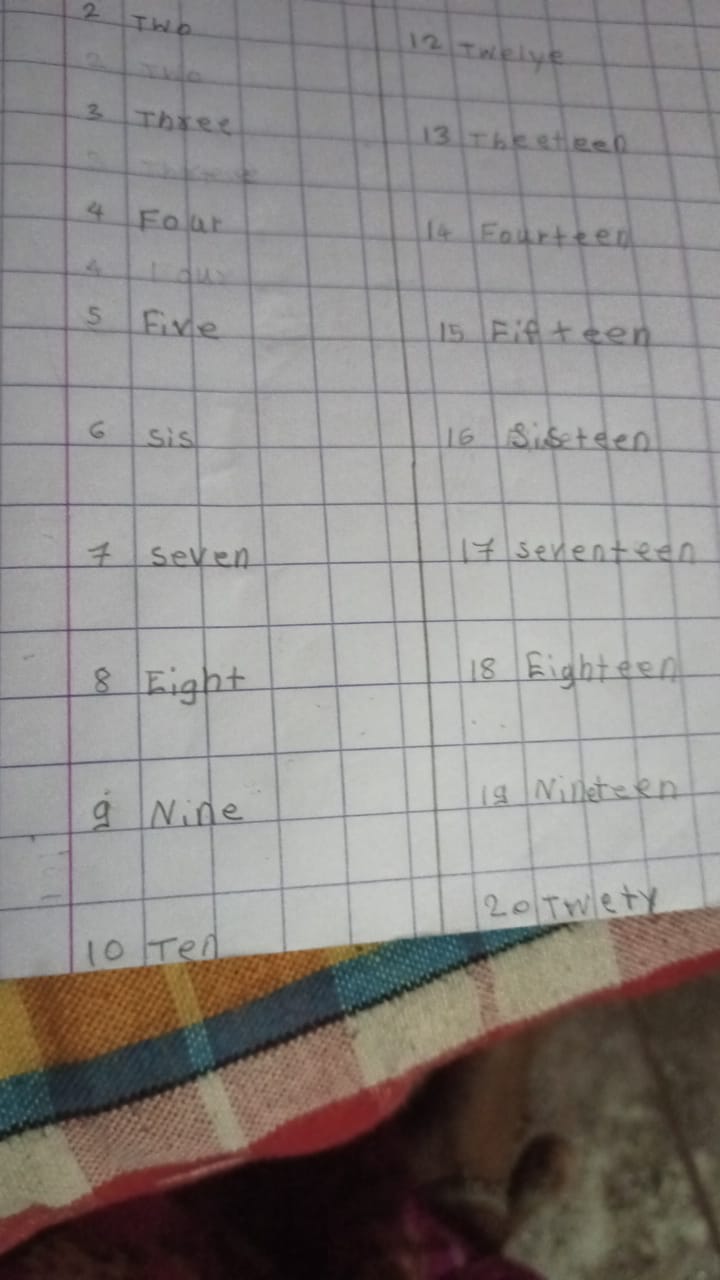 2 Two
2 Two
3 Three
4 Four
4 Four
5 Five
6 sis
7 seven
8 Eight
9 Nine
10 Ten
12 Twelve
13 Theeteen
14 Fourteen
15 Fifteen
16 Sisteen
17 seventeen
18 Eighteen
19 Nineteen
20 Twety